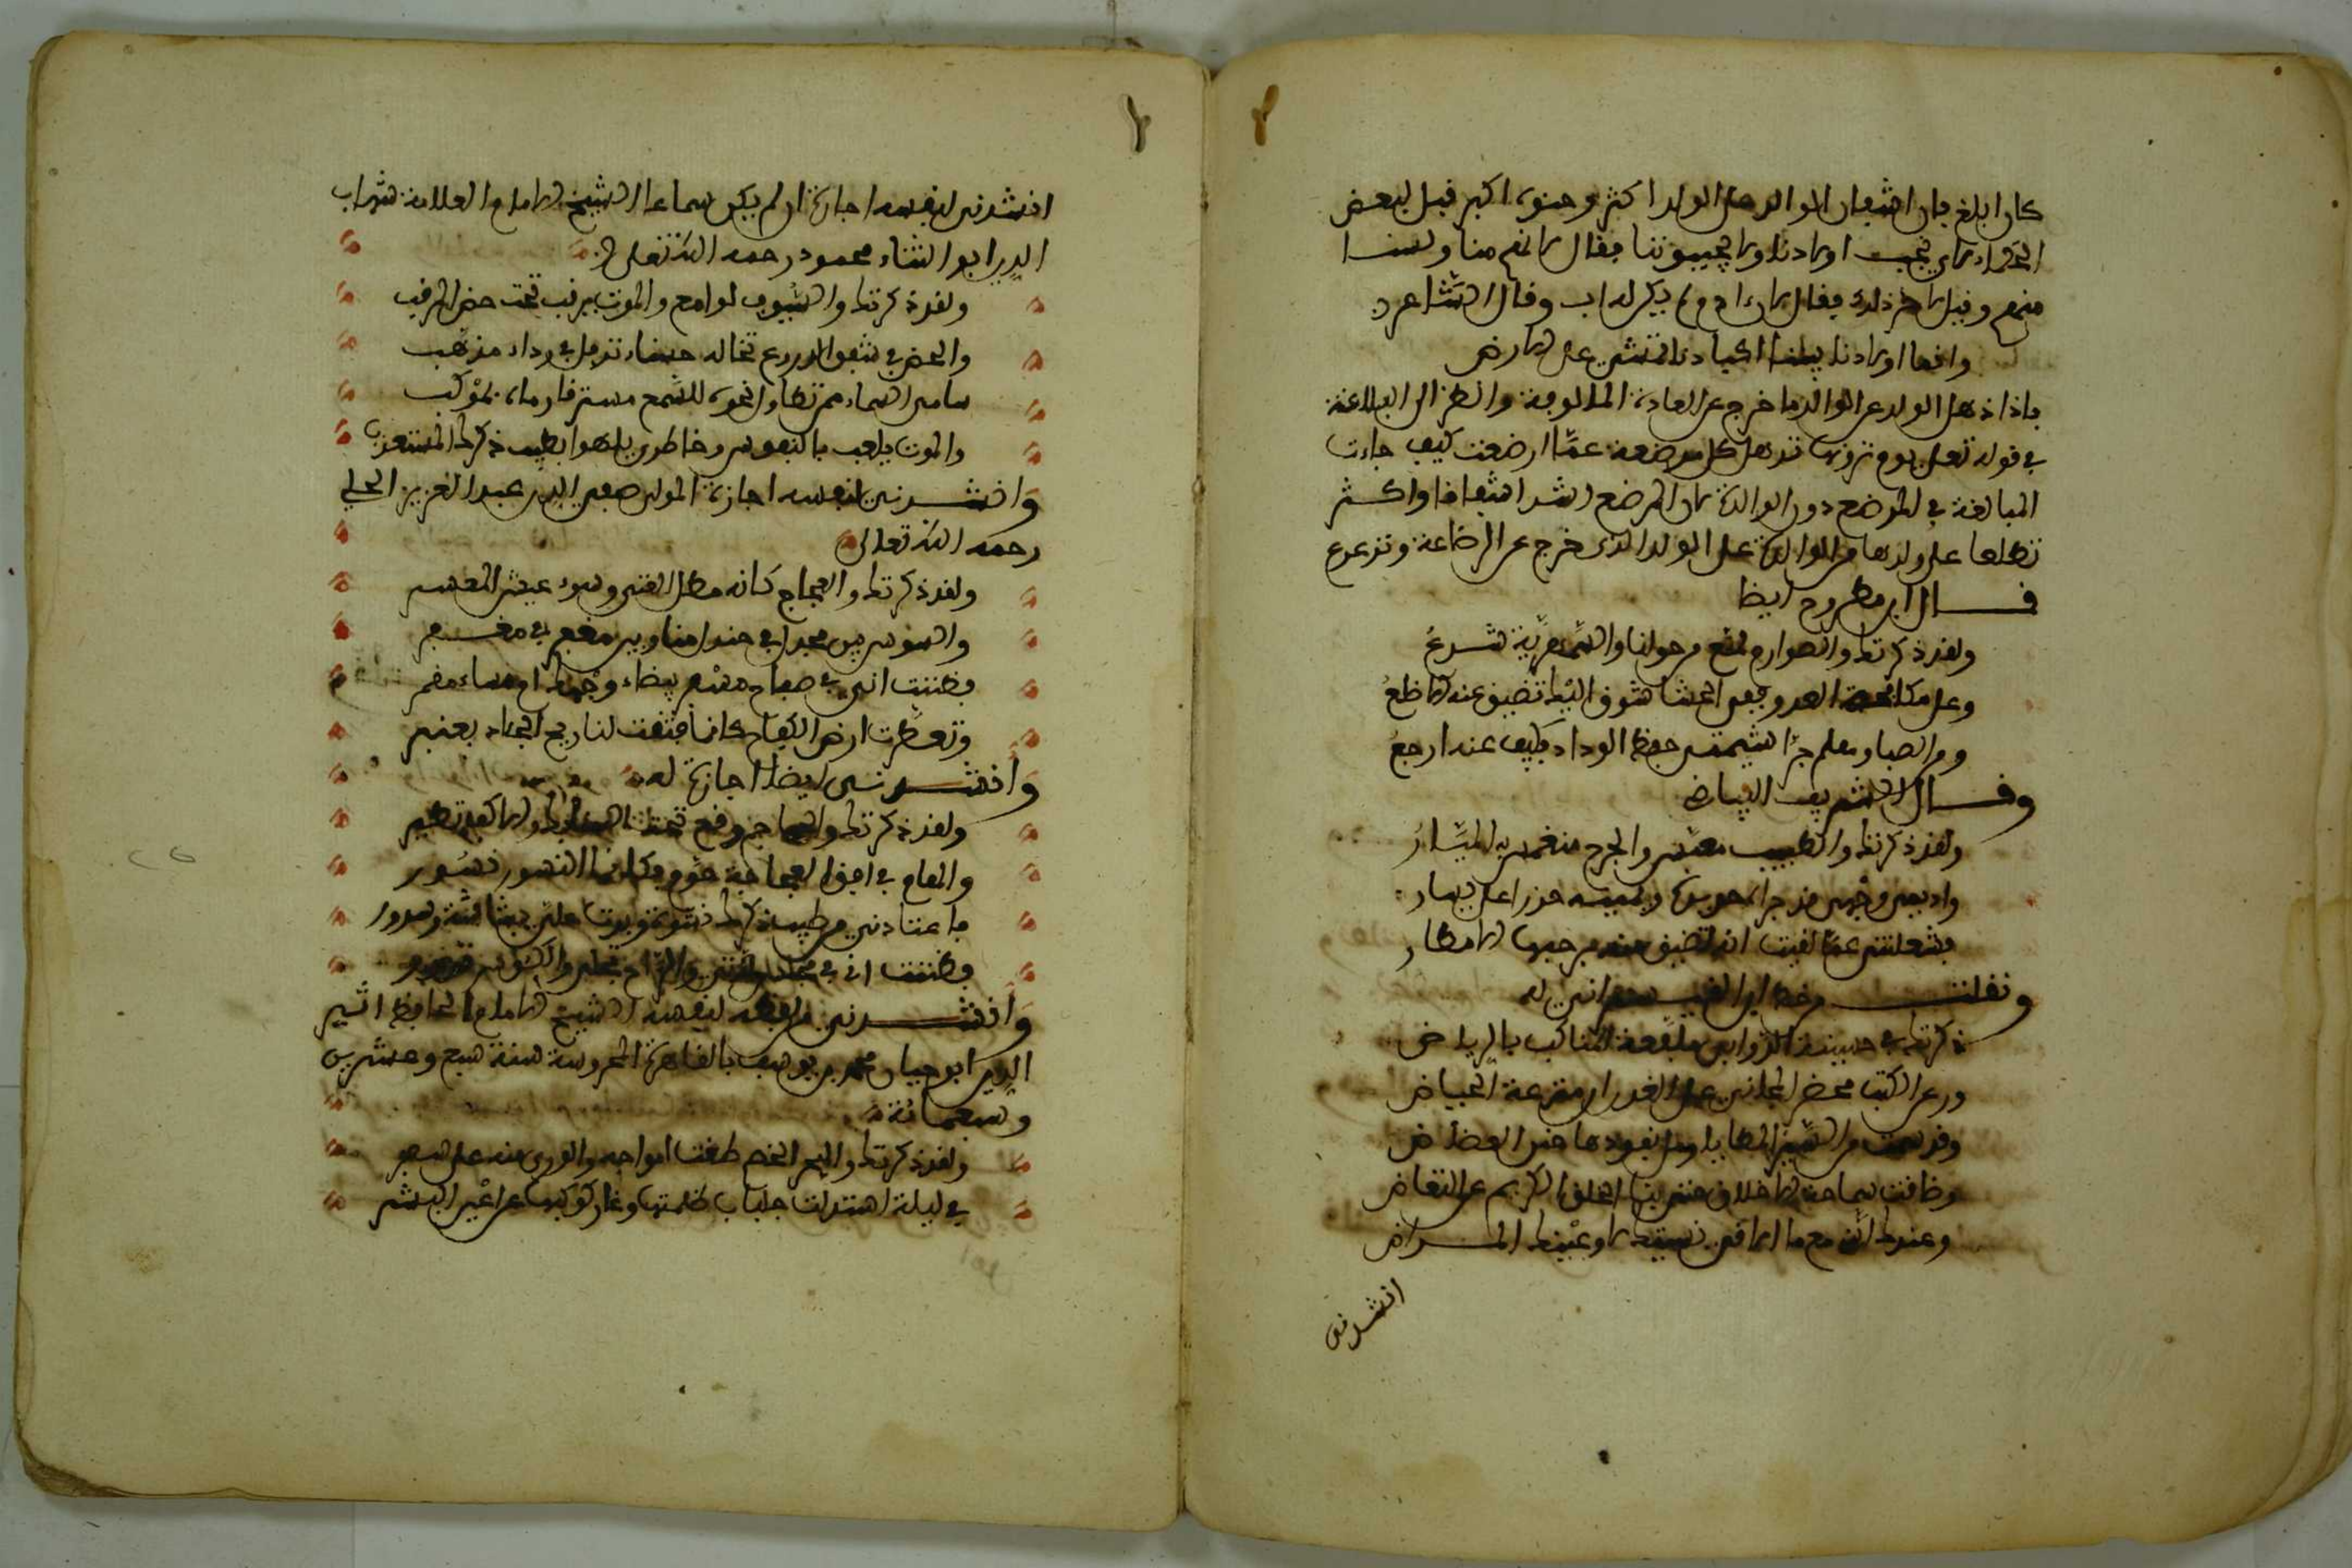 كان ابلغ بان اشفاق الوالد على الولد اكثر وحنوه اكبر قيل لبعض
الحكماء لاي نحب اولادنا ولا يحبوننا فقال لانهم منا ولسنا
منهم وقيل في ذلك فقال لان ادم لم يكن له اب وقال الشاعر
وانما اولادنا بيننا اكبادنا تمشي على الارض
فاذا ذهل الولد عن الوالد ما خرج عن العادة المالوفة وانظر الى البلاغة
في قوله تعلى يوم ترونها تذهل كل مرضعة عما ارضعت كيف جاءت
المبالغة في المرضع دون الوالدة لان المرضع اشد اشفاقا واكثر
تطلعا على ولدها من الوالدة على الولد الذي خرج عن الرضاعة وترعرع
قال ابن مطروح ايضا
ولقد ذكرتك والصوارم لمع من حولنا والسمهرية شرع
وعلى مكافحة العدو ففي الحشا شوق اليك تضيق عنه الاضلع
ومن الصبا وهلم جرا شيمتي حفظ الوداد فكيف عنه ارجع
وقال الشريف البياضي
ولقد ذكرتك والطبيب معبس والجرح منغمس به المسبار
واديم وجهي قد فراه حديده ويمينه حذرا علي يسار
فشغلتني عما لقيت انه لتضيق منه برحبها الاقطار
ونقلت من خط ابن القيسراني له
ذكرتك في الروابي ملفعة المناكب بالرياض
ورعن الكتب مخضر المجاني على الغدران مترعة الحياض
وقد من السير المطايا
وضاقت ساحة الاخلاق حتى الخلق الكريم عن التغاضي
وعندك انني مع ما الاقي نسيتك لا وعينيك المراض
انشدني
انشدني لنفسه اجازة ان لم يكن سماعا الشيخ الامام العلامة شهاب
الدين ابو الثناء محمود رحمه الله تعلى
ولقد ذكرتك والسيوف لوامع والموت يرقب تحت حصن المرقب
والحصن في شفق الدروع تخاله حسناء ترفل في رداء مذهب
سامى السماء فمن تطاول نحوه للسمع مسترقا رماه بكوكب
والموت يلعب بالنفوس وخاطري يلهو بطيب ذكرك المستعذب
وانشدني لنفسه اجازة المولى صفي الدين عبد العزيز الحلي
رحمه الله تعالى
ولقد ذكرتك والعجاج كانه مطل الغني وسوء عيش المعسر
والشوس بين مجدل في جندل منا وبين معفر في مغفر
فظننت اني في صباح مسفر بضياء وجهك ام مساء مقمر
وتعطرت ارض الكفاح كانما فتقت لنا ريح الجلاد بعنبر
وانشدني ايضا اجازة له
ولقد ذكرتك والجماجم وقع تحت السنابك والاكف تطير
والهام في افق العجاجة حوم فكانها النسور نسور
فاعتادني من طيب ذكرك نشوة وبدت علي بشاشة وسرور
فظننت اني في مجلس والراح تجلى والكؤوس تدور
وانشدني لفظه لنفسه الشيخ الامام الحافظ اثير
الدين ابو حيان محمد بن يوسف بالقاهرة المحروسة سنة سبع وعشرين
وسبعمائة
ولقد ذكرتك والبحر الخضم طغت امواجه والورى منه على سفر
في ليلة اسدلت جلباب ظلمتها وغار كوكبها عن اعين البشر